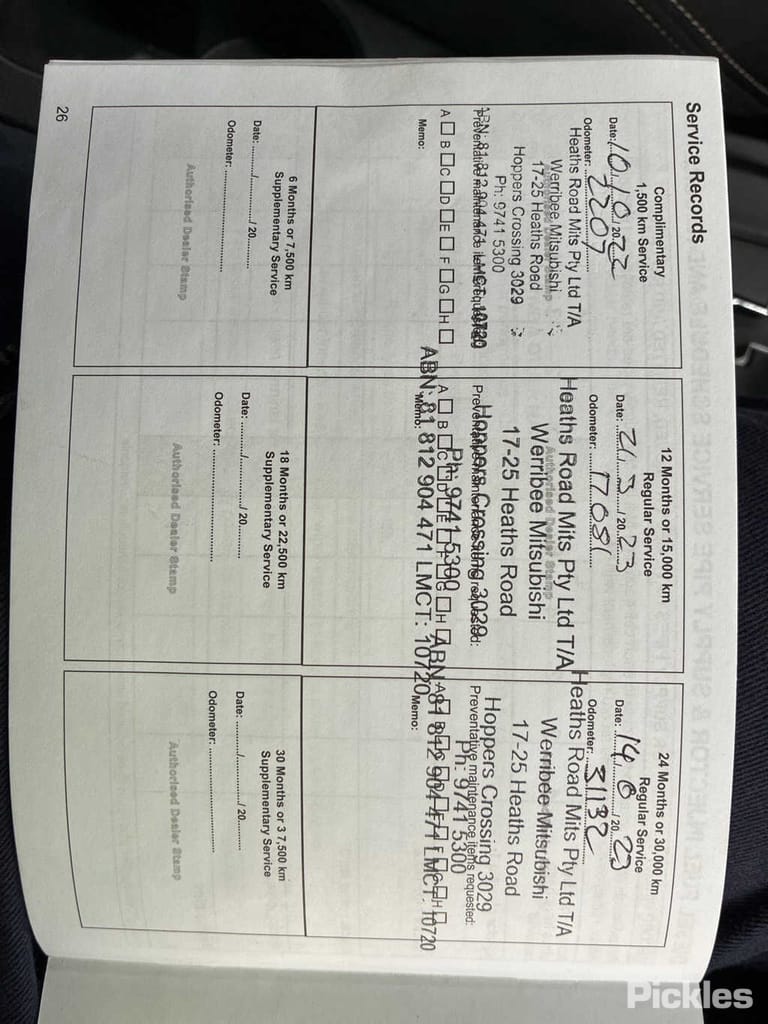 Service Records
Complimentary
1,500 km Service
Date: 10/10/2022
Odometer: 2207
Heaths Road Mits Pty Ltd T/A
Werribee Mitsubishi
17-25 Heaths Road
Hoppers Crossing 3029
Ph: 9741 5300
ABN: 81 812 904 471 LMCT: 10720
Preventative maintenance items requested:
A B C D E F G H
Memo:
12 Months or 15,000 km
Regular Service
Date: 2023
Odometer: 17081
Heaths Road Mits Pty Ltd T/A
Authorised Dealer Stamp
Werribee Mitsubishi
17-25 Heaths Road
Hoppers Crossing 3029
Preventative maintenance items requested:
Ph: 9741 5300
A B C D E F G H
ABN: 81 812 904 471 LMCT: 10720
Memo:
24 Months or 30,000 km
Regular Service
Date: 14/6/2023
Odometer: 31132
Heaths Road Mits Pty Ltd T/A
Werribee Mitsubishi
17-25 Heaths Road
Hoppers Crossing 3029
Preventative maintenance items requested:
Ph: 9741 5300
A B C D E F G H
ABN: 81 812 904 471 LMCT: 10720
Memo:
6 Months or 7,500 km
Supplementary Service
Date: ........./........./ 20..........
Odometer: ..............................
Authorised Dealer Stamp
18 Months or 22,500 km
Supplementary Service
Date: ........./........./ 20..........
Odometer: ..............................
Authorised Dealer Stamp
30 Months or 3 7,500 km
Supplementary Service
Date: ........./........./ 20..........
Odometer: ..............................
Authorised Dealer Stamp
26
Pickles